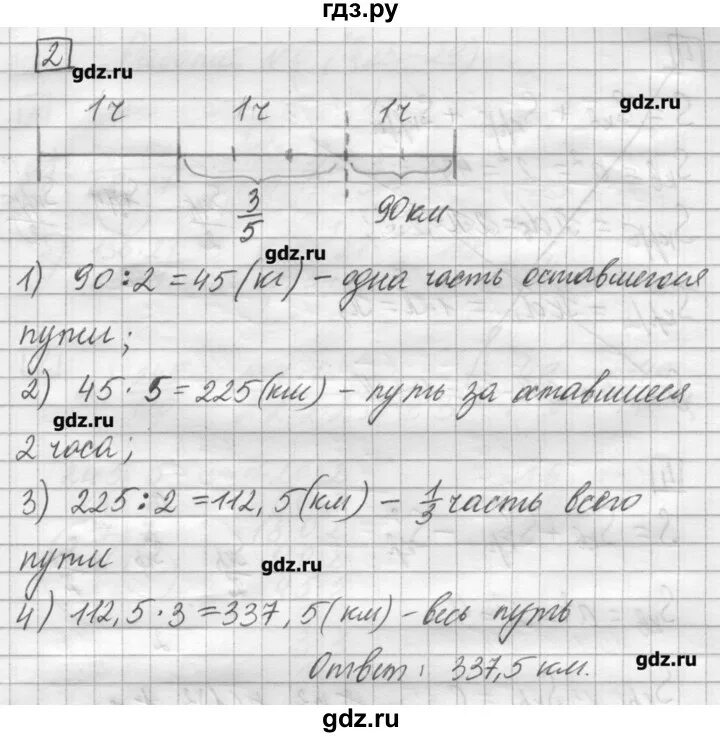 гдз.ру
2
gdz.ru
gdz.ru
1ч 1ч 1ч
3/5
90 км
gdz.ru
1) 90 : 2 = 45 (кг) – одна часть оставшегося
пути;
2) 45 · 5 = 225 (км) – путь за оставшиеся
gdz.ru
2 часа;
3) 225 : 2 = 112,5 (км) – 1/3 часть всего
пути
gdz.ru
4) 112,5 · 3 = 337,5 (км) – весь путь
Ответ: 337,5 км.
gdz.ru
gdz.ru